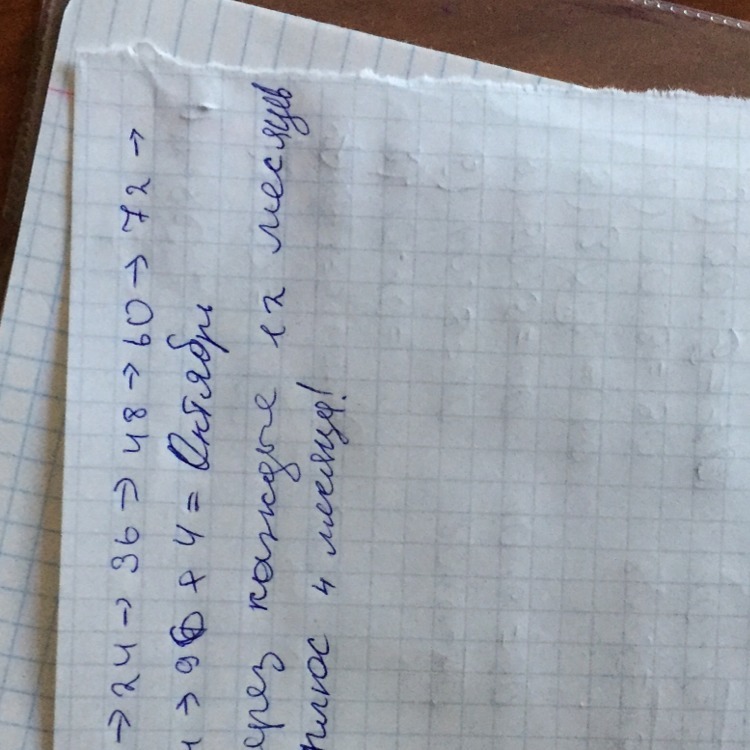 → 24 → 36 → 48 → 60 → 72 →
→ 96 + 4 = Октябрь
ерез каждые 12 месяцев
плюс 4 месяца!